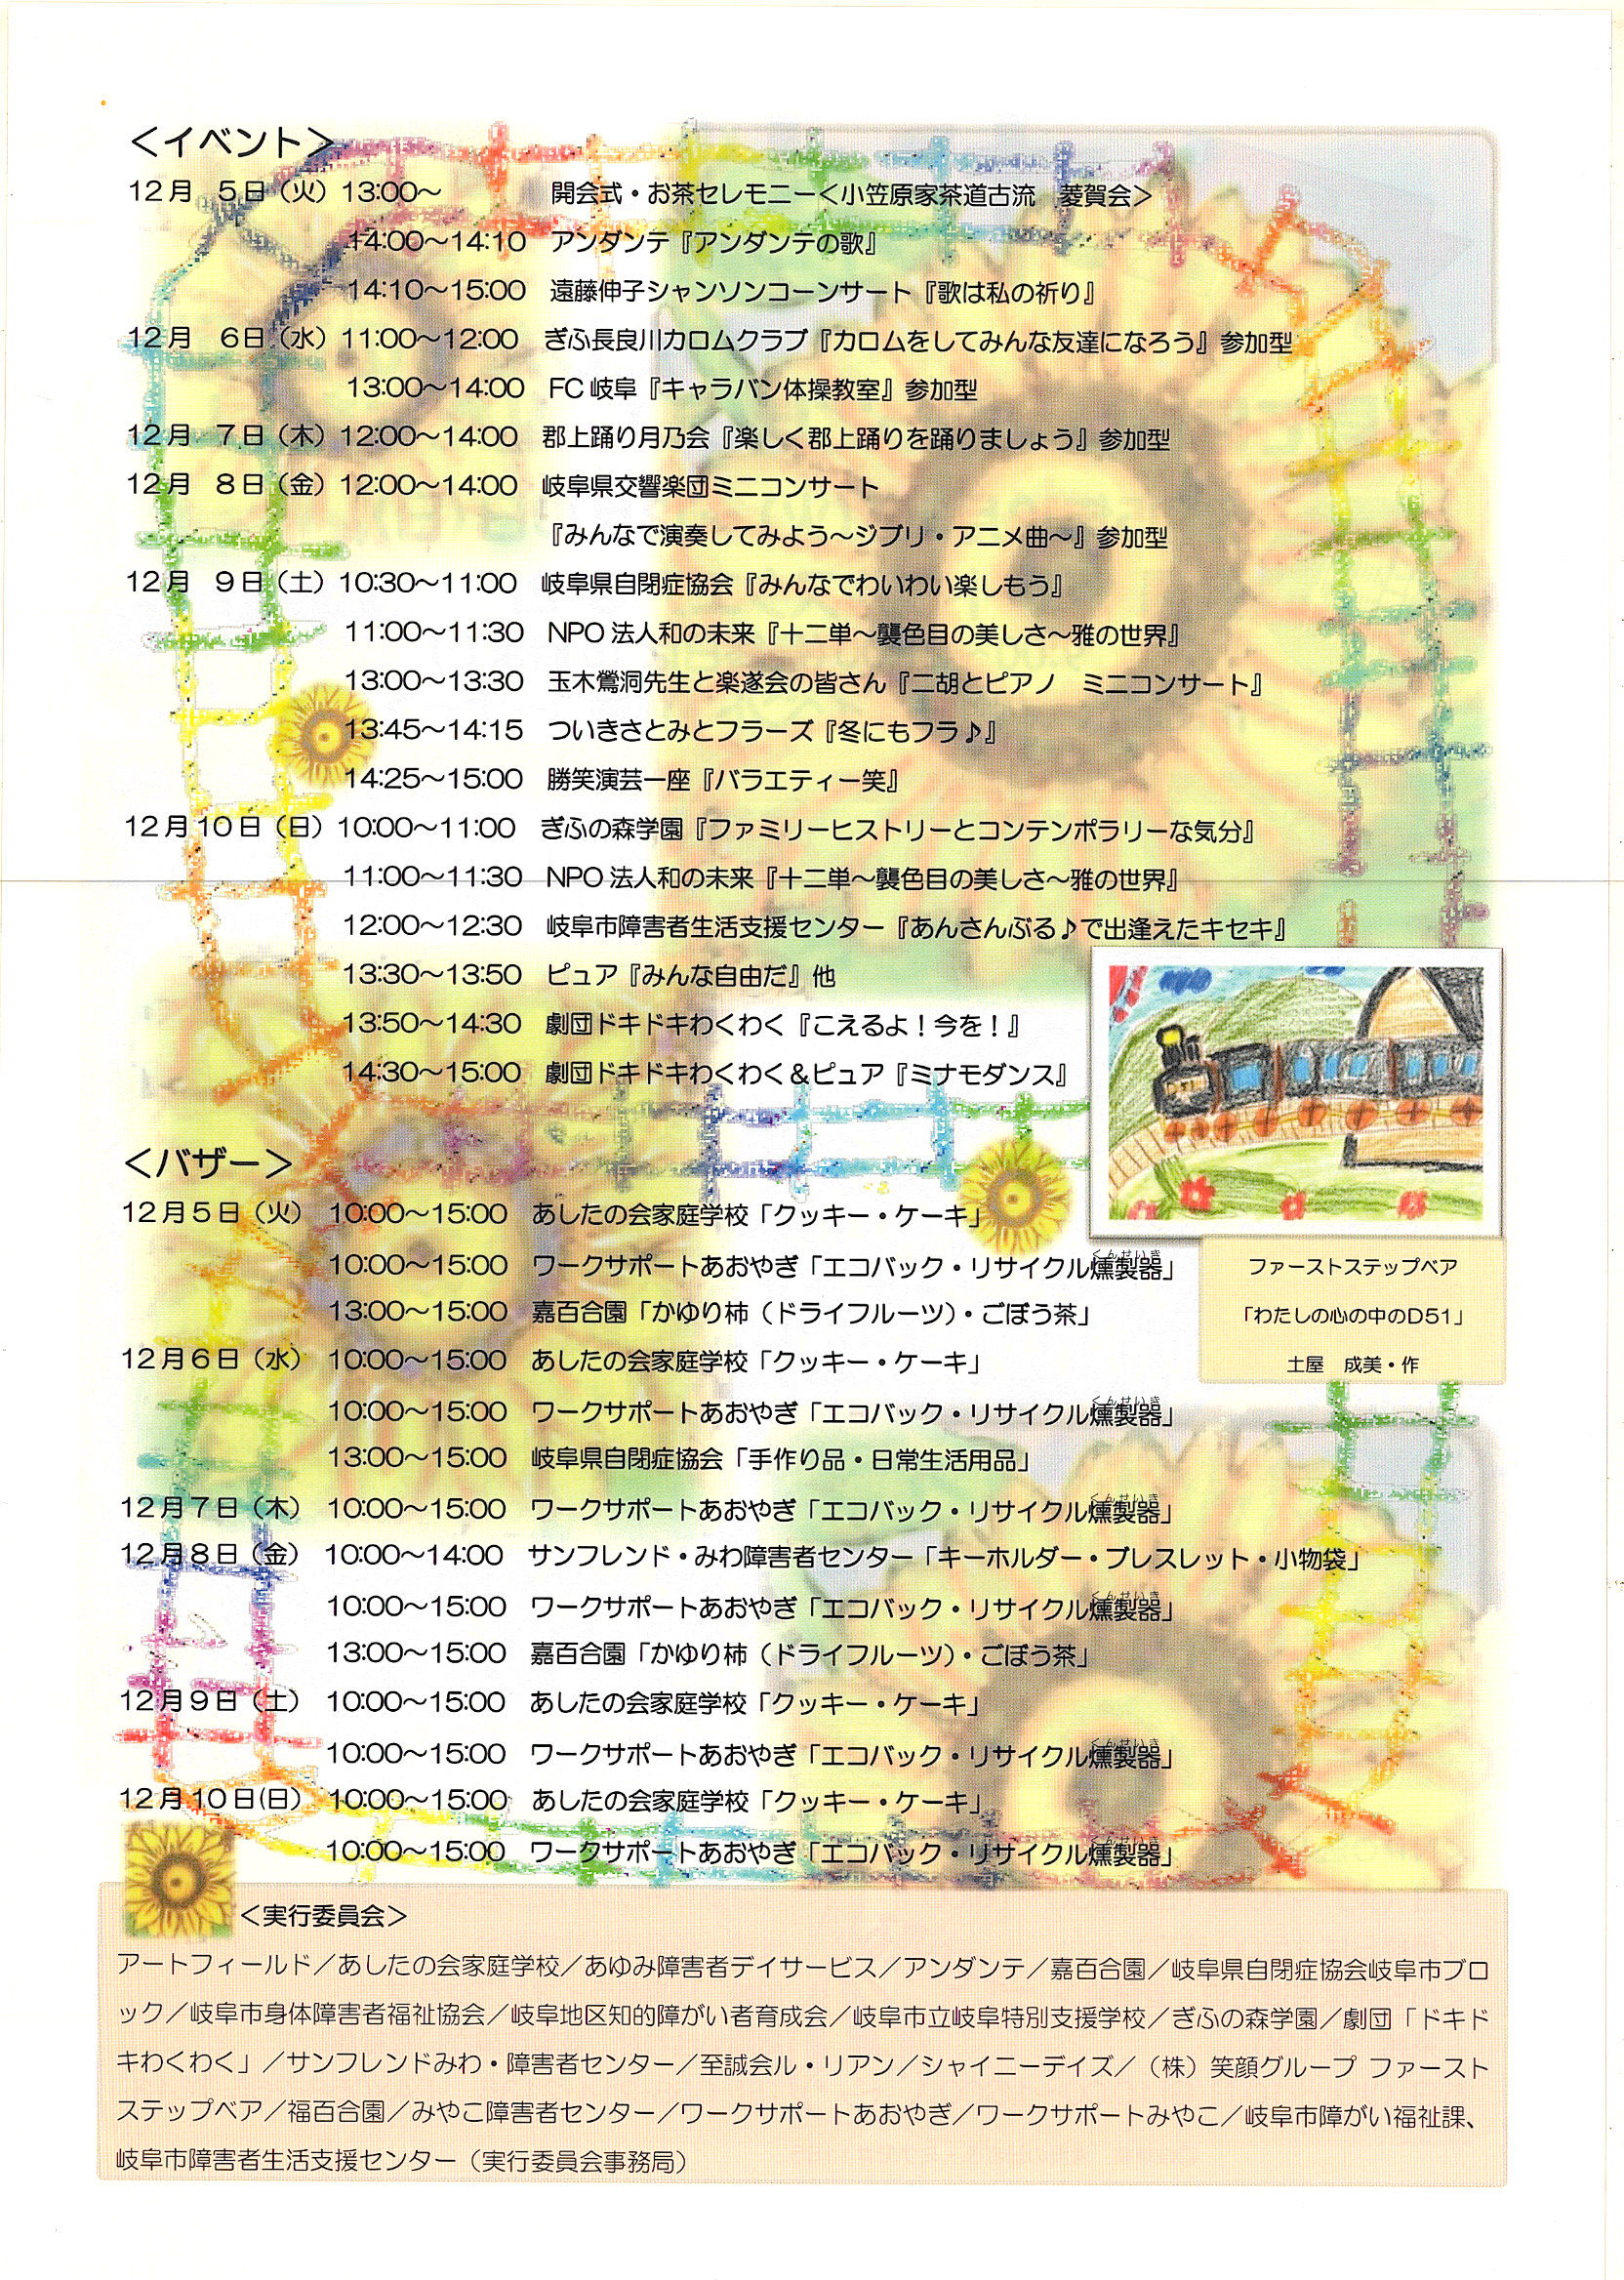 ＜イベント＞
12月 5日（火）13:00～ 開会式・お茶セレモニー＜小笠原家茶道古流 菱賀会＞
14:00～14:10 アンダンテ『アンダンテの歌』
14:10～15:00 遠藤伸子シャンソンコーンサート『歌は私の祈り』
12月 6日（水）11:00～12:00 ぎふ長良川カロムクラブ『カロムをしてみんな友達になろう』参加型
13:00～14:00 FC岐阜『キャラバン体操教室』参加型
12月 7日（木）12:00～14:00 郡上踊り月乃会『楽しく郡上踊りを踊りましょう』参加型
12月 8日（金）12:00～14:00 岐阜県交響楽団ミニコンサート
『みんなで演奏してみよう～ジブリ・アニメ曲～』参加型
12月 9日（土）10:30～11:00 岐阜県自閉症協会『みんなでわいわい楽しもう』
11:00～11:30 NPO法人和の未来『十二単～襲色目の美しさ～雅の世界』
13:00～13:30 玉木鶯洞先生と楽遂会の皆さん『二胡とピアノ ミニコンサート』
13:45～14:15 ついきさとみとフラーズ『冬にもフラ♪』
14:25～15:00 勝笑演芸一座『バラエティー笑』
12月10日（日）10:00～11:00 ぎふの森学園『ファミリーヒストリーとコンテンポラリーな気分』
11:00～11:30 NPO法人和の未来『十二単～襲色目の美しさ～雅の世界』
12:00～12:30 岐阜市障害者生活支援センター『あんさんぶる♪で出逢えたキセキ』
13:30～13:50 ピュア『みんな自由だ』他
13:50～14:30 劇団ドキドキわくわく『こえるよ！今を！』
14:30～15:00 劇団ドキドキわくわく＆ピュア『ミナモダンス』
＜バザー＞
12月5日（火） 10:00～15:00 あしたの会家庭学校「クッキー・ケーキ」
くんせいき
10:00～15:00 ワークサポートあおやぎ「エコバック・リサイクル燻製器」
13:00～15:00 嘉百合園「かゆり柿（ドライフルーツ）・ごぼう茶」
12月6日（水） 10:00～15:00 あしたの会家庭学校「クッキー・ケーキ」
くんせいき
10:00～15:00 ワークサポートあおやぎ「エコバック・リサイクル燻製器」
13:00～15:00 岐阜県自閉症協会「手作り品・日常生活用品」
くんせいき
12月7日（木） 10:00～15:00 ワークサポートあおやぎ「エコバック・リサイクル燻製器」
12月8日（金） 10:00～14:00 サンフレンド・みわ障害者センター「キーホルダー・ブレスレット・小物袋」
くんせいき
10:00～15:00 ワークサポートあおやぎ「エコバック・リサイクル燻製器」
13:00～15:00 嘉百合園「かゆり柿（ドライフルーツ）・ごぼう茶」
12月9日（土） 10:00～15:00 あしたの会家庭学校「クッキー・ケーキ」
くんせいき
10:00～15:00 ワークサポートあおやぎ「エコバック・リサイクル燻製器」
12月10日(日) 10:00～15:00 あしたの会家庭学校「クッキー・ケーキ」
くんせいき
10:00～15:00 ワークサポートあおやぎ「エコバック・リサイクル燻製器」
ファーストステップベア
「わたしの心の中のD51」
土屋 成美・作
＜実行委員会＞
アートフィールド／あしたの会家庭学校／あゆみ障害者デイサービス／アンダンテ／嘉百合園／岐阜県自閉症協会岐阜市ブロ
ック／岐阜市身体障害者福祉協会／岐阜地区知的障がい者育成会／岐阜市立岐阜特別支援学校／ぎふの森学園／劇団「ドキド
キわくわく」／サンフレンドみわ・障害者センター／至誠会ル・リアン／シャイニーデイズ／（株）笑顔グループ ファースト
ステップベア／福百合園／みやこ障害者センター／ワークサポートあおやぎ／ワークサポートみやこ／岐阜市障がい福祉課、
岐阜市障害者生活支援センター（実行委員会事務局）